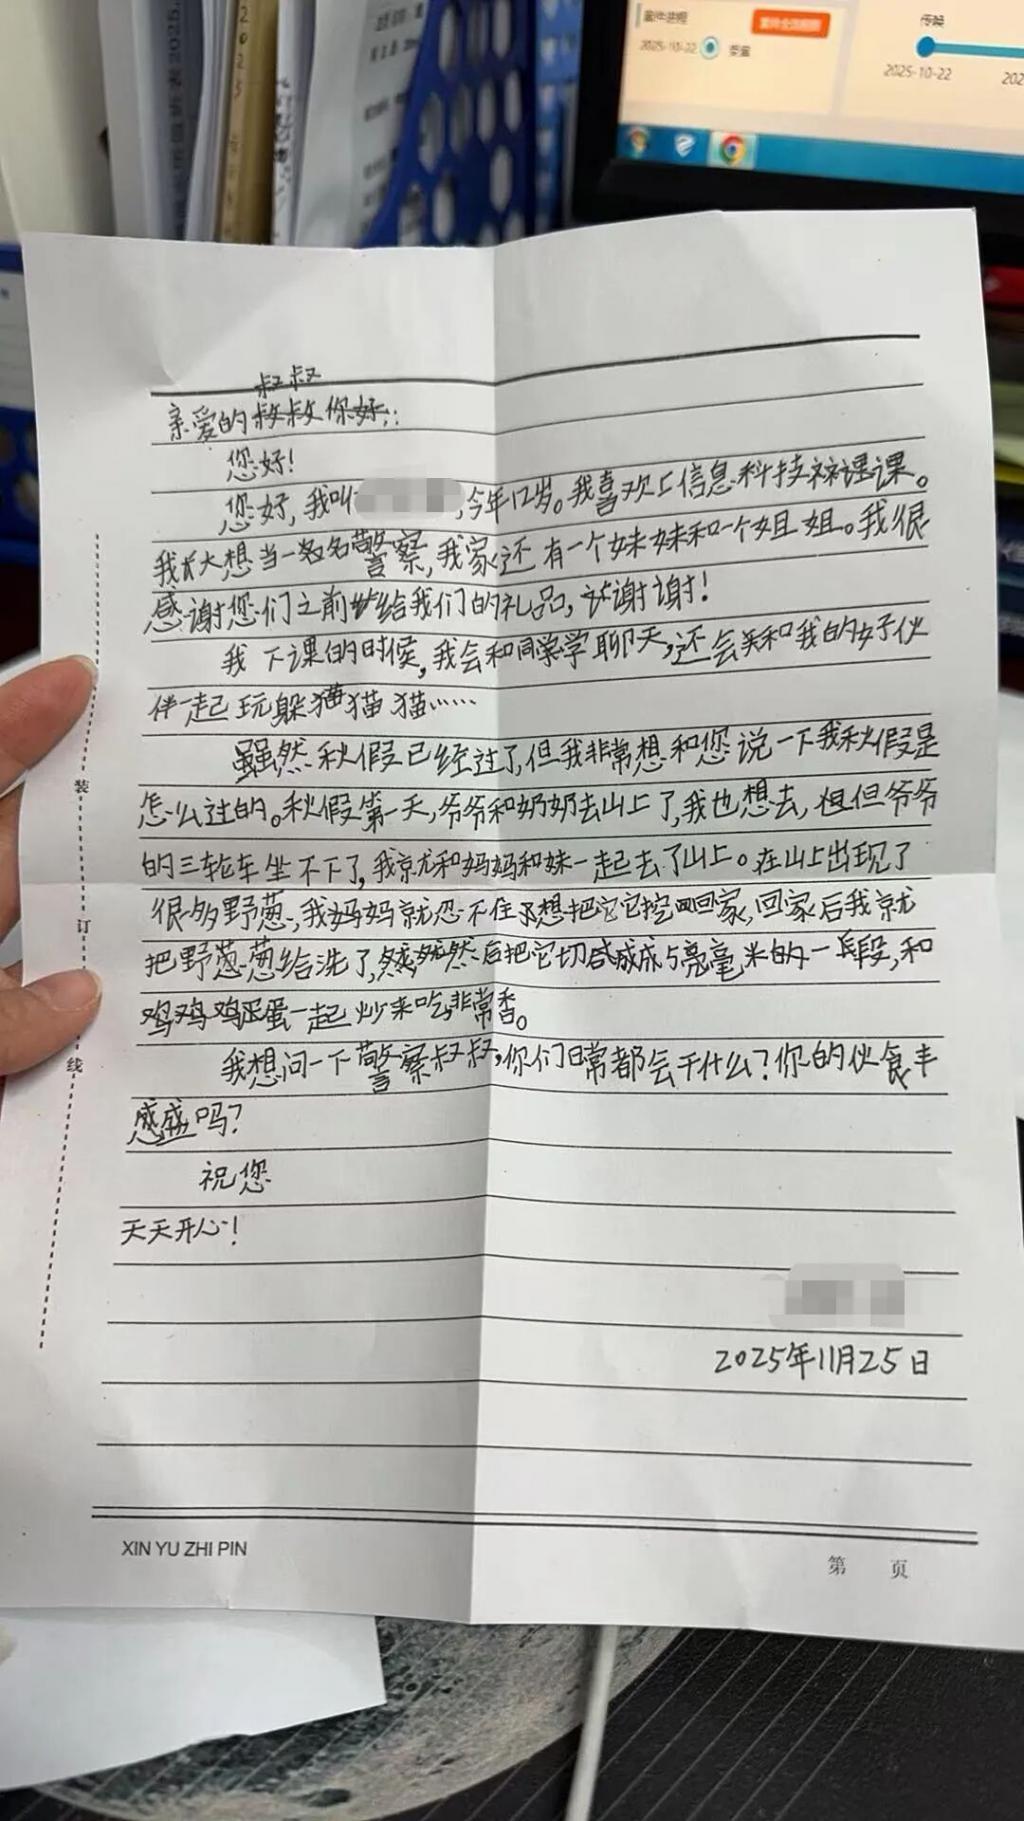 案件进程
2025-10-22
传唤
2025-10-22
叔叔
亲爱的叔叔你好:
您好!
您好,我叫 ,今年12岁。我喜欢上信息科技课。
我长大想当一名警察,我家还有一个妹妹和一个姐姐。我很
感谢您们之前给我们的礼品,谢谢!
我下课的时候,我会和同学聊天,还会和我的好伙
伴一起玩躲猫猫……
虽然秋假已经过了,但我非常想和您说一下我秋假是
怎么过的。秋假第一天,爷爷和奶奶去山上了,我也想去,但爷爷
的三轮车坐不下了,我就和妈妈和妹一起去了山上。在山上出现了
很多野葱,我妈妈就忍不住想把它挖回家,回家后我就
把野葱给洗了,然后把它切成5毫米的一段,和
鸡蛋一起炒来吃,非常香。
我想问一下警察叔叔,你们日常都会干什么?你的伙食丰
盛吗?
祝您
天天开心!
2025年11月25日
装
订
线
XIN YU ZHI PIN
第 页